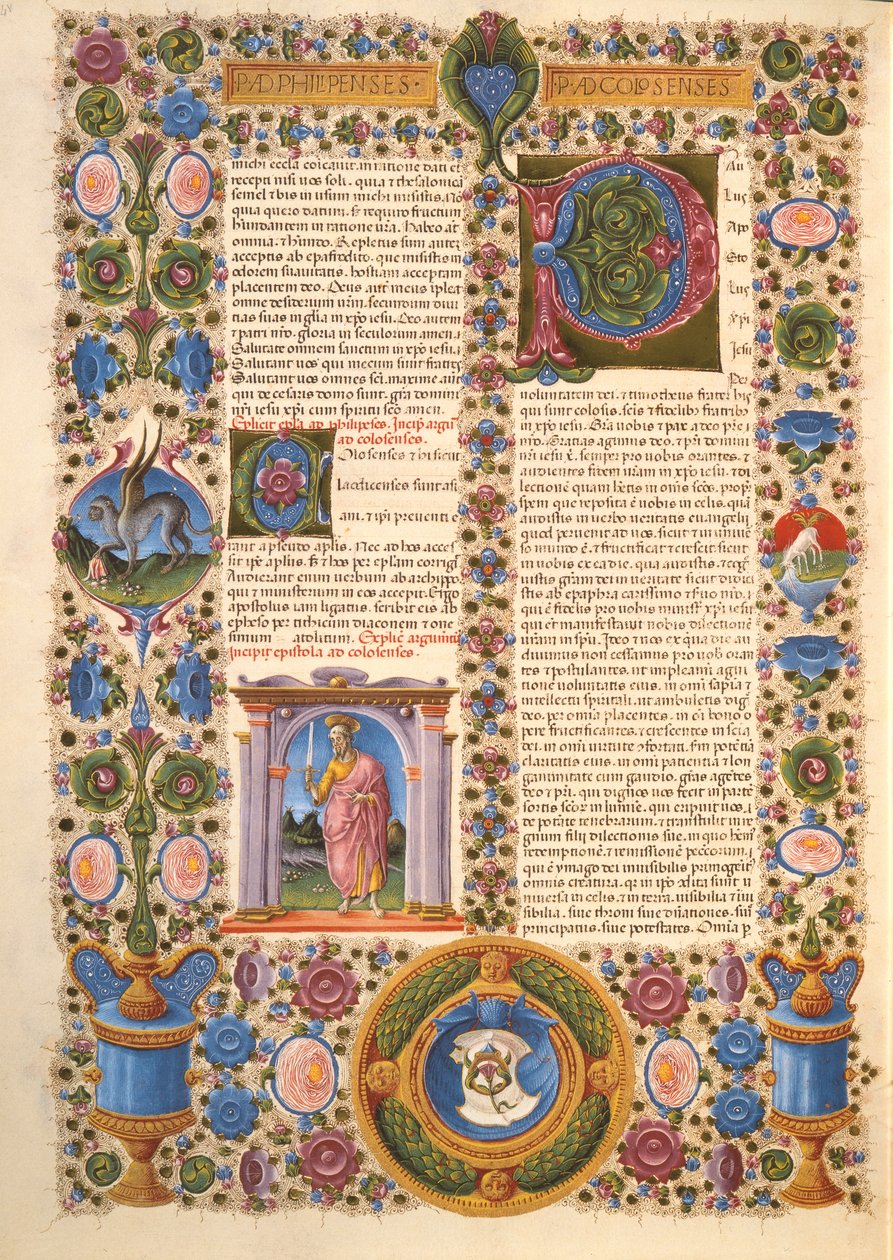 P. AD PHILIPENSES ·
· P · AD COLOSENSES
michi eccl̄a coīcauit. in ratione dati et
recepti nisi uos soli . quia & thesalonicā
semel & bis in usum michi misistis. Nō
quia quero datum. sȝ requiro fructum
hundantem in ratione ur̄a. Habeo āt
omnia . & hundo. Repletus sum auteȝ
acceptis ab epafrodito . que misistis in
odorem suauitatis . hostiam acceptam
placentem deo . Deus aūt meus ipleat
omne desiderium ur̄m . secundum diui
tias suas in glīa in xp̄o iesu . Deo autem
& patri nr̄o . gloria in seculorum amen .
Salutate omnem sanctum in xp̄o iesu .
Salutant uos qui mecum sunt fratres
Salutant uos omnes sc̄i . maxime aūt
qui de cesaris domo sunt . gr̄a domini
nr̄i iesu xp̄i cum spiritu ur̄o amen .
Explicit epl̄a ad philipēses . Incip̄ argum̄
ad colosenses .
Olosenses & hi sicut
laodicenses sunt asi
ani . & ip̄i preuenti e
rant a pseudo ap̄lis . Nec ad hos acces
sit ip̄e ap̄lus . sȝ & hos per epl̄am corrigit
Audierant enim uerbum ab archippo
qui & ministerium in eos accepit . Ergo
apostolus iam ligatus . scribit eis ab
epheso per tithicum diaconem & one
simum acolitum . Explic̄ argumētū
Incipit epistola ad colosenses .
P
Au
Lus
Apo
Sto
Lus
Xp̄i
Iesu
Per
uoluntatem dei . & timotheus frater his
qui sunt colosis . sc̄is & fidelibꝰ fratribꝰ
in xp̄o iesu . Gr̄a uobis & pax a deo p̄re
nr̄o . Gratias agimus deo . & pr̄i domini
nr̄i iesu x̄ . semper pro uobis orantes . &
audientes fidem ur̄am in xp̄o iesu . & di
lectionē quam h̄etis in om̄s sc̄os . propꝉ
spem que reposita ē uobis in celis . quā
audistis in uerbo ueritatis euangelii
quod peruenit ad uos . sicut & in uniuer
so mundo ē . & fructificat & crescit sicut
in uobis ex ea die . qua audistis . & cogno
uistis gr̄am dei in ueritate sicut didici
stis ab epaphra carissimo ɔseruo nr̄o .
qui ē fidelis pro uobis minist̄ xp̄i iesu
qui et manifestauit nobis dilectionē
ur̄am in sp̄u . Ideo & nos ex qua die au
diuimus non cessamus pro uob̄ oran
tes & postulantes . ut impleamī agni
tione uoluntatis eius . in om̄i sap̄ia &
intellectu spiritali . ut ambuletis digē
deo . per omia placentes . in oī bono o
pere fructificantes . & crescentes in scīa
dei . in om̄i uirtute ɔfortati . sm̄ potētiā
claritatis eius . in omi patientia & lon
ganimitate cum gaudio . gr̄as agētes
deo & pr̄i . qui dignos uos fecit in partē
sortis sc̄or̄ in lumine . qui eripuit nos .
de potāte tenebrarum . & transtulit in re
gnum filii dilectionis sue . in quo hēmꝰ
redemptionē . & remissionē peccorum .
qui ē ymago dei inuisibilis primogeitꝰ
omnis creatura . qr̄ in ip̄o ɔdita sunt u
niuersa in celis . & in terra . uisibilia & īui
sibilia . siue throni siue dn̄ationes . siue
principatus . siue potestates . Omīa p̄